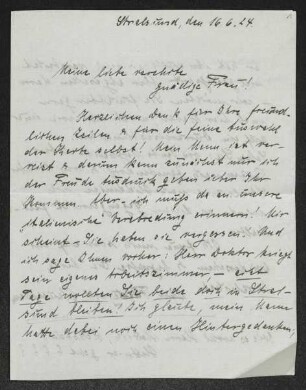 Stralsund, den 16.6.24
Meine liebe verehrte
gnädige Frau!
Herzlichen Dank für Ihre freund-
lichen Zeilen & für die feine Auswahl
der Werke selbst! Mein Mann ist ver-
reist & darum kann zunächst nur ich
der Freude Ausdruck geben über Ihr
Kommen. Aber - ich muß da an unsere
"italienische" Verabredung erinnern! Mir
scheint - Sie haben sie vergessen. Und
ich sage Ihnen vorher: Herr Doktor kriegt
sein eigenes Arbeitszimmer -
Tage wollten Sie beide doch in Stral-
sund bleiben! Ich glaube, mein Mann
hatte dabei noch einen Hintergedanken,